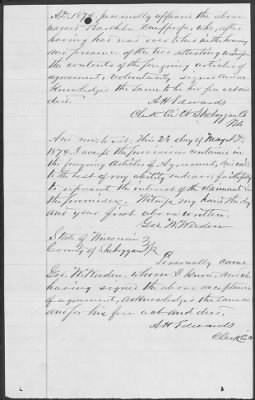 A.D. 1874, personally appeared the above
named Barthba, who, after
having had read over to her in the hearing
and presence of the two attesting witnesses
the contents of the foregoing articles of
agreement, voluntarily signed and ac-
knowledged the same to be her free act and
deed.
A H Edwards
Clerk Cir Ct Sheboygan Co
Wis
And now, to wit: This 23 day of May A.D.
1874, I accept the provisions contained in
the foregoing Articles of Agreement, and will
to the best of my ability endeavor faithfully
to represent the interest of the claimant in
the premises. Witness my hand the day
and year first above written.
Geo. W. Weeden
State of Wisconsin
County of Sheboygan
Personally came
Geo. W. Weeden, whom I know, and who
having signed the above acceptance
of agreement, acknowledged the same
and for his free act and deed.
A H Edwards
Clerk